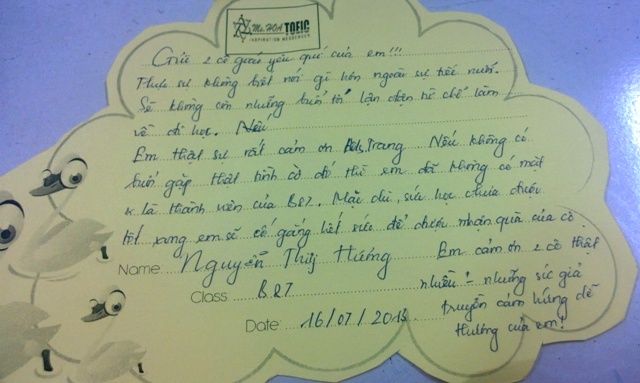 Ms. HOA TOEIC
INSPIRATION MESSENGER
Gửi 2 cô giáo yêu quí của em!!!
Thực sự không biết nói gì hơn ngoài sự tiếc nuối.
Sẽ không còn những buổi tối lận đận từ chỗ làm
về đi học. Nếu
Em thật sự rất cảm ơn Ms. Trang. Nếu không có
buổi gặp thật tình cờ đó thì em đã không có mặt
là thành viên của B27. Mặc dù, sức học chưa được
tốt xong em sẽ cố gắng hết sức để được nhân quả của cô
Name Nguyễn Thuý Hương
Em cảm ơn 2 cô thật
Class: B27
nhiều! - những sứ giả
truyền cảm hứng dễ
thương của em!
Date: 16/07/2013